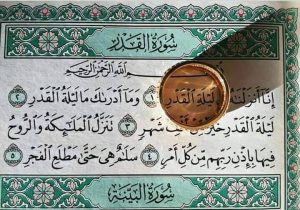 سُورَةُ الْقَدْرِ
بِسْمِ اللَّهِ الرَّحْمَٰنِ الرَّحِيمِ
إِنَّا أَنزَلْنَٰهُ لَيْلَةِ الْقَدْرِ ١ وَمَا أَدْرَىٰكَ مَا لَيْلَةُ الْقَدْرِ ٢
لَيْلَةُ الْقَدْرِ خَيْرٌ مِّنْ شَهْرٍ ٣ تَنَزَّلُ الْمَلَٰٓئِكَةُ وَالرُّوحُ
فِيهَا بِإِذْنِ رَبِّهِم مِّن كُلِّ أَمْرٍ ٤ سَلَٰمٌ هِيَ حَتَّىٰ مَطْلَعِ الْفَجْرِ ٥
سُورَةُ الْبَيِّنَةِ